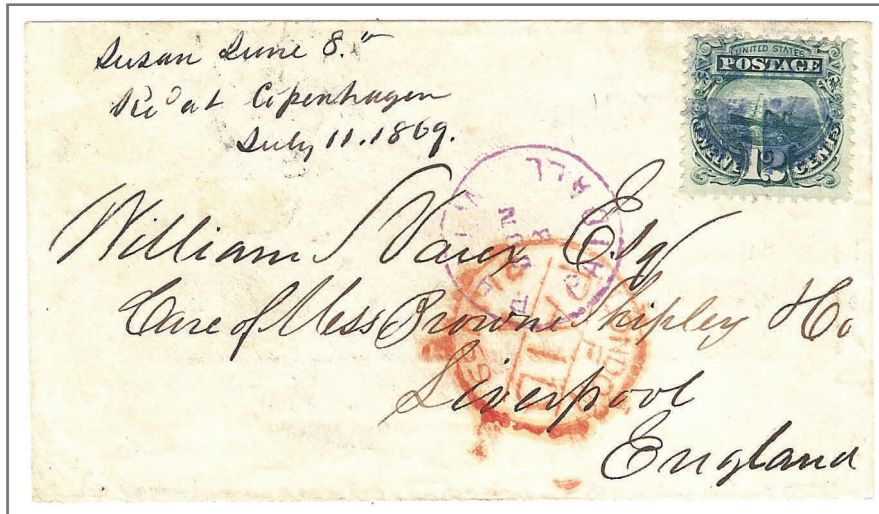 Susan June 8."
Rec'd at Copenhagen
July 11. 1869.
UNITED STATES
POSTAGE
TWELVE 12 CENTS
William S Vaux Esq
Care of Mess Browne Shipley & Co
Liverpool
England
PAID
ALL
PAID